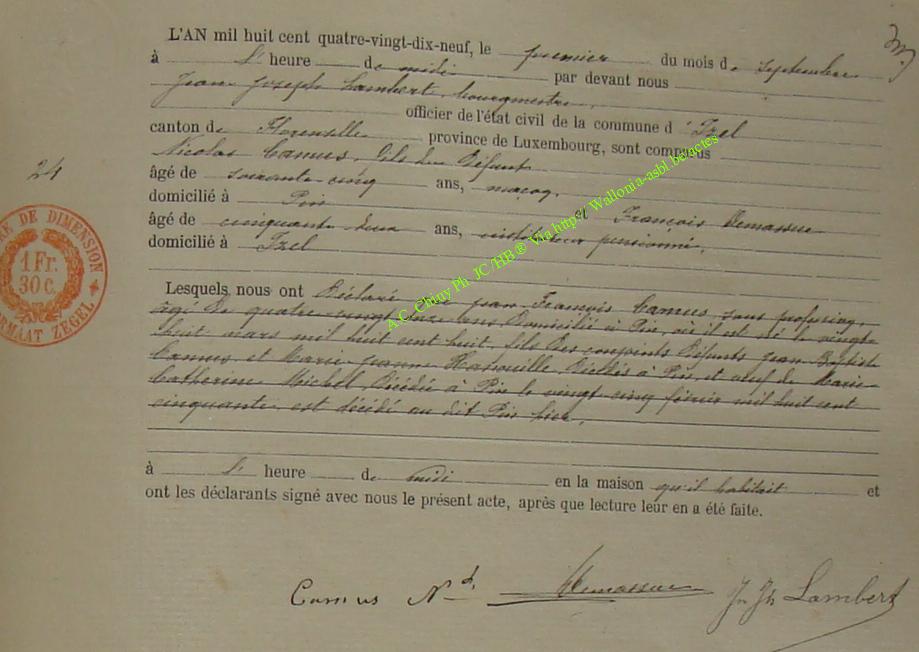 L'AN mil huit cent quatre-vingt-dix-neuf, le premier du mois de septembre
à l' heure de midi par devant nous
Jean Joseph Lambert, bourgmestre,
officier de l'état civil de la commune d'Izel
canton de Florenville province de Luxembourg, sont comparus
Nicolas Camus, fils du défunt
âgé de soixante-cinq ans, maçon,
domicilié à Pin et François Demasure
âgé de cinquante deux ans, instituteur pensionné,
domicilié à Izel
24
TIMBRE DE DIMENSION
1 Fr.
30 C.
FORMAAT ZEGEL
A.C. Chiny Ph. JC/HB® Via http:// Wallonia-asbl.be/actes
Lesquels nous ont déclaré que Jean François Camus, sans profession,
âgé de quatre-vingt onze ans, domicilié à Pin, où il est né le vingt-
huit mars mil huit cent huit, fils des conjoints défunts Jean Baptiste
Camus, et Marie Jeanne décédés à Pin, et veuf de Marie
Catherine Michel, décédée à Pin le vingt-cinq février mil huit cent
cinquante est décédé au dit Pin hier,
à l' heure de midi en la maison qu'il habitait et
ont les déclarants signé avec nous le présent acte, après que lecture leur en a été faite.
Camus Nas Demasure Jn Jh Lambert